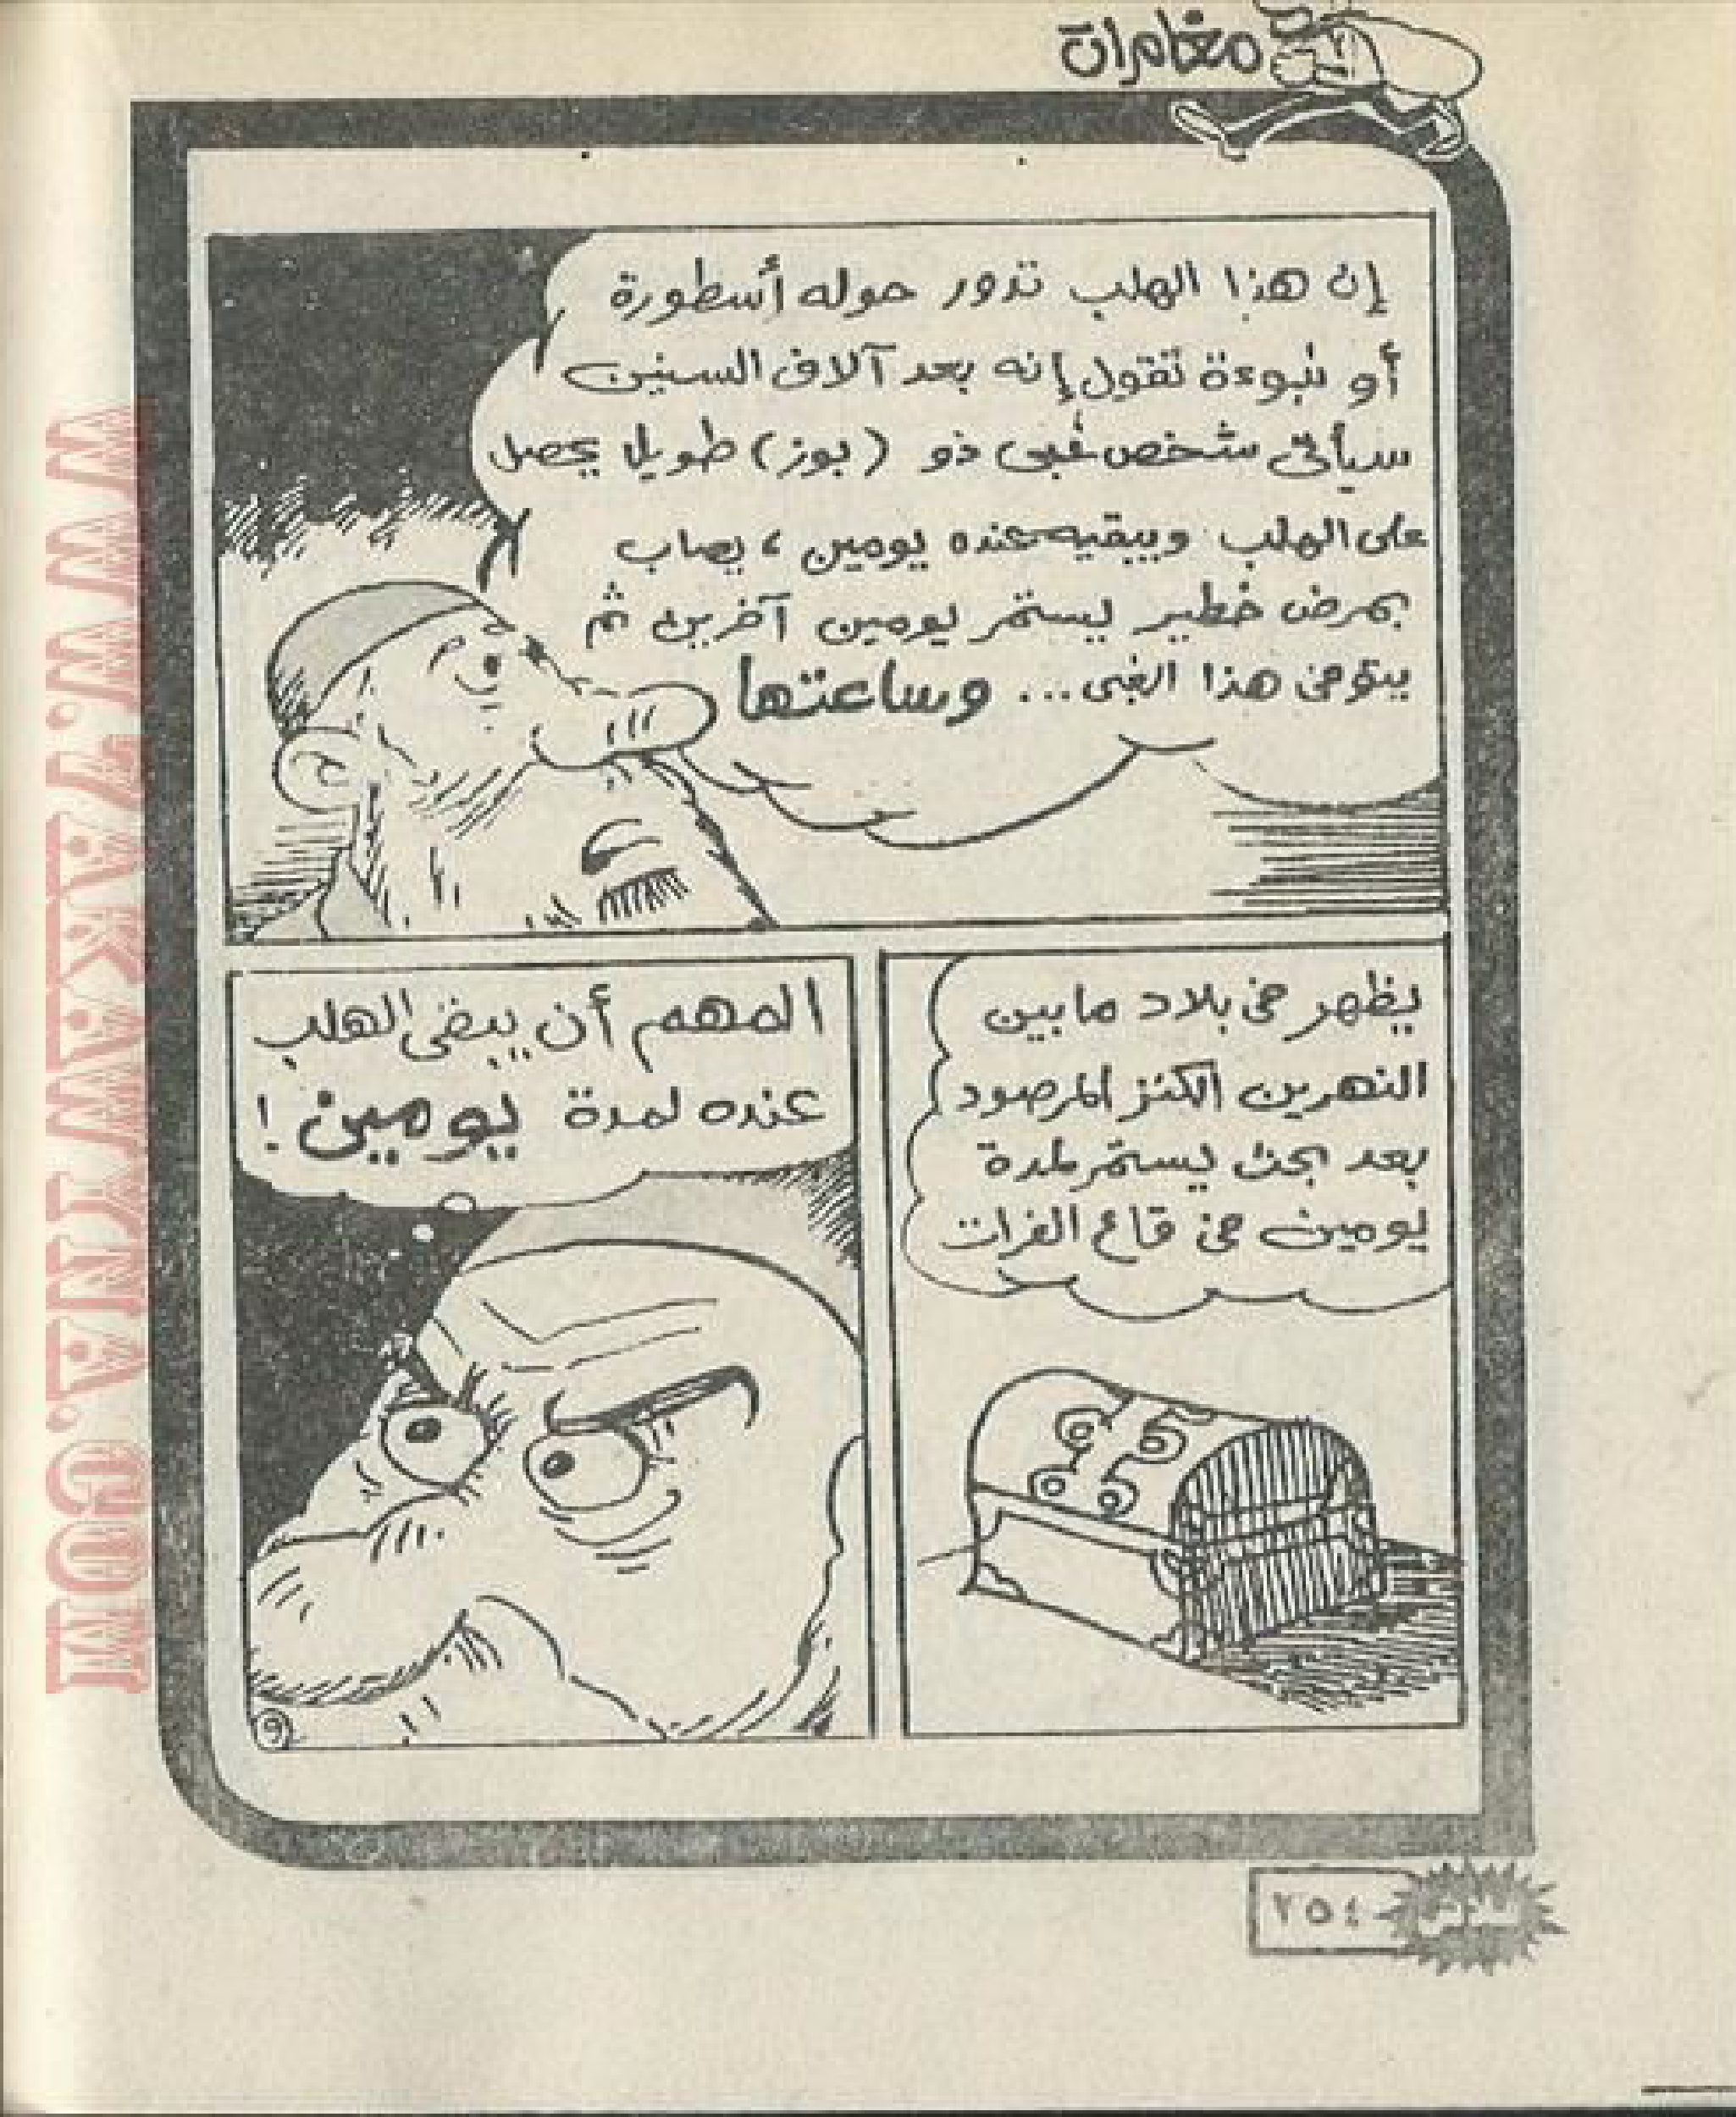 مغامرات
إن هذا الهلب تدور حوله أسطورة
أو نبوءة تقول إنه بعد آلاف السنين
سيأتى شخص غبى ذو (بوز) طويل يحصل
على الهلب ويبقيه عنده يومين، يصاب
بمرض خطير يستمر يومين آخرين ثم
يتوفى هذا الغبى... وساعتها
يظهر فى بلاد ما بين
النهرين الكنز المرصود
بعد بحث يستمر لمدة
يومين فى قاع الفرات
المهم أن يبقى الهلب
عنده لمدة يومين!
٩
٢٥٤
WWW.ARAWINA.COM